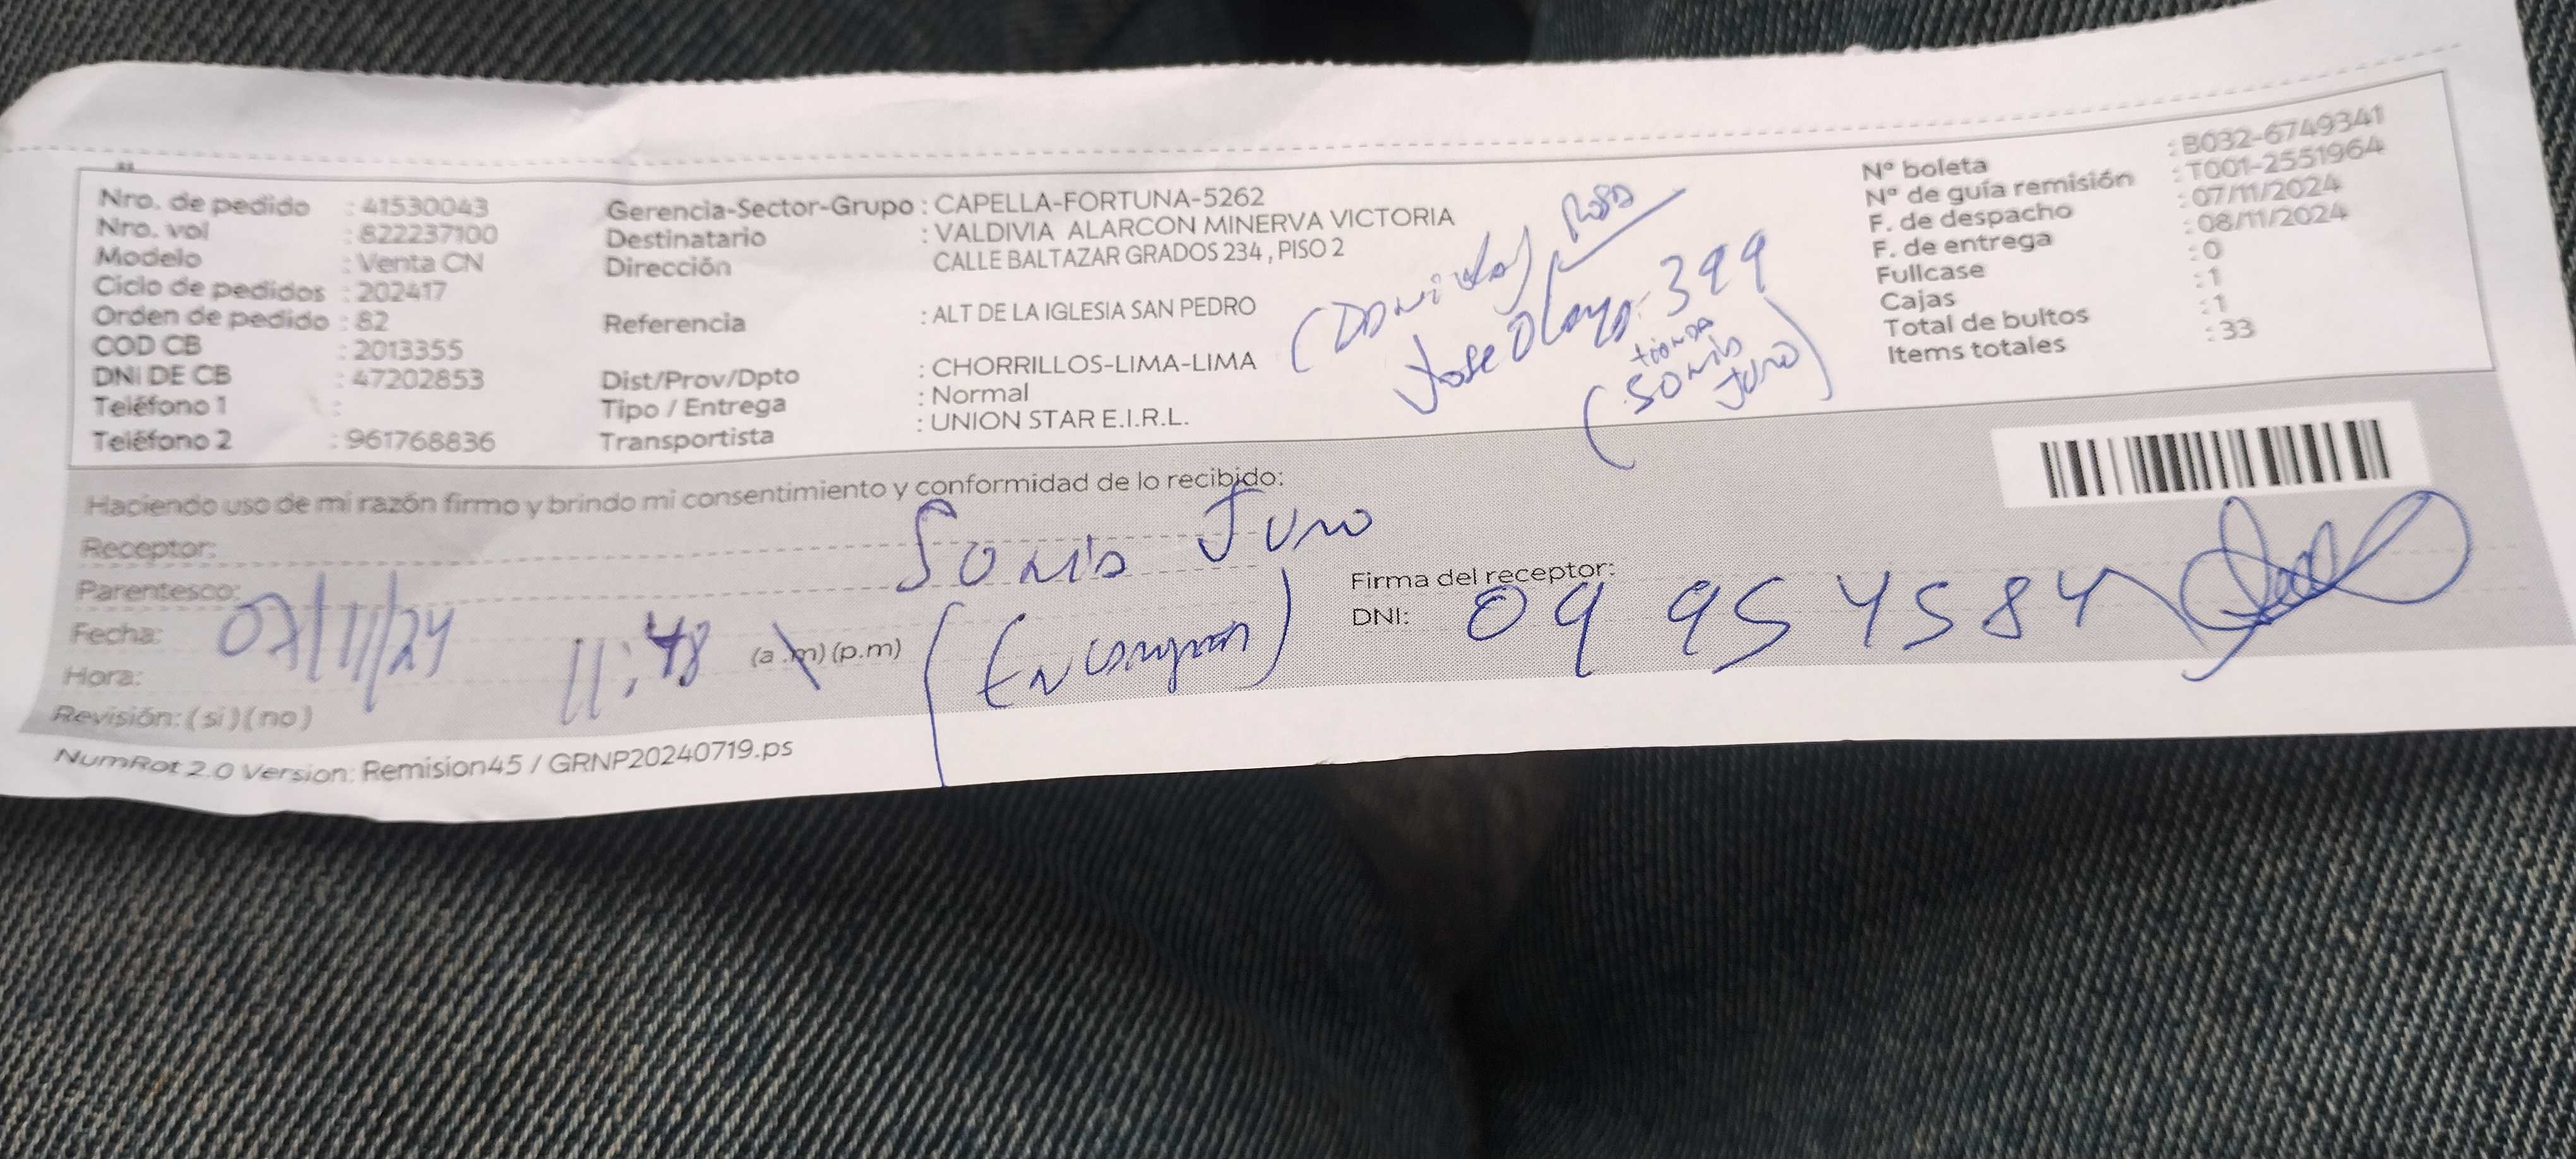 Nro. de pedido : 41530043
Nro. vol : 822237100
Modelo : Venta CN
Ciclo de pedidos : 202417
Orden de pedido : 82
COD CB : 2013355
DNI DE CB : 47202853
Teléfono 1 :
Teléfono 2 : 961768836
Gerencia-Sector-Grupo : CAPELLA-FORTUNA-5262
Destinatario : VALDIVIA ALARCON MINERVA VICTORIA
Dirección CALLE BALTAZAR GRADOS 234 , PISO 2
Referencia : ALT DE LA IGLESIA SAN PEDRO
Dist/Prov/Dpto : CHORRILLOS-LIMA-LIMA
Tipo / Entrega : Normal
Transportista : UNION STAR E.I.R.L.
Rosa
Jose Olaya 399
(tienda
Sonia
Juro)
Nº boleta : B032-6749341
Nº de guía remisión : T001-2551964
F. de despacho : 07/11/2024
F. de entrega : 08/11/2024
Fullcase : 0
Cajas : 1
Total de bultos : 1
Items totales : 33
Haciendo uso de mi razón firmo y brindo mi consentimiento y conformidad de lo recibido:
Receptor: Sonia Juro
Parentesco:
Fecha: 07/11/24
Hora: 11:48 (a.m) (p.m)
Firma del receptor:
DNI: 09954584
Revisión: ( si ) ( no )
NumRot 2.0 Version: Remision45 / GRNP20240719.ps